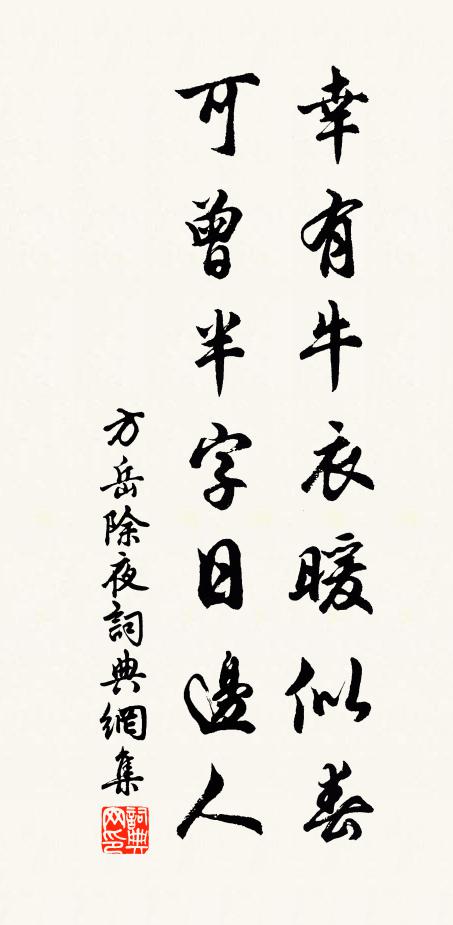 幸有牛衣暖似春
可曾半字日邊人
方岳除夜詞典網集
詞典网印